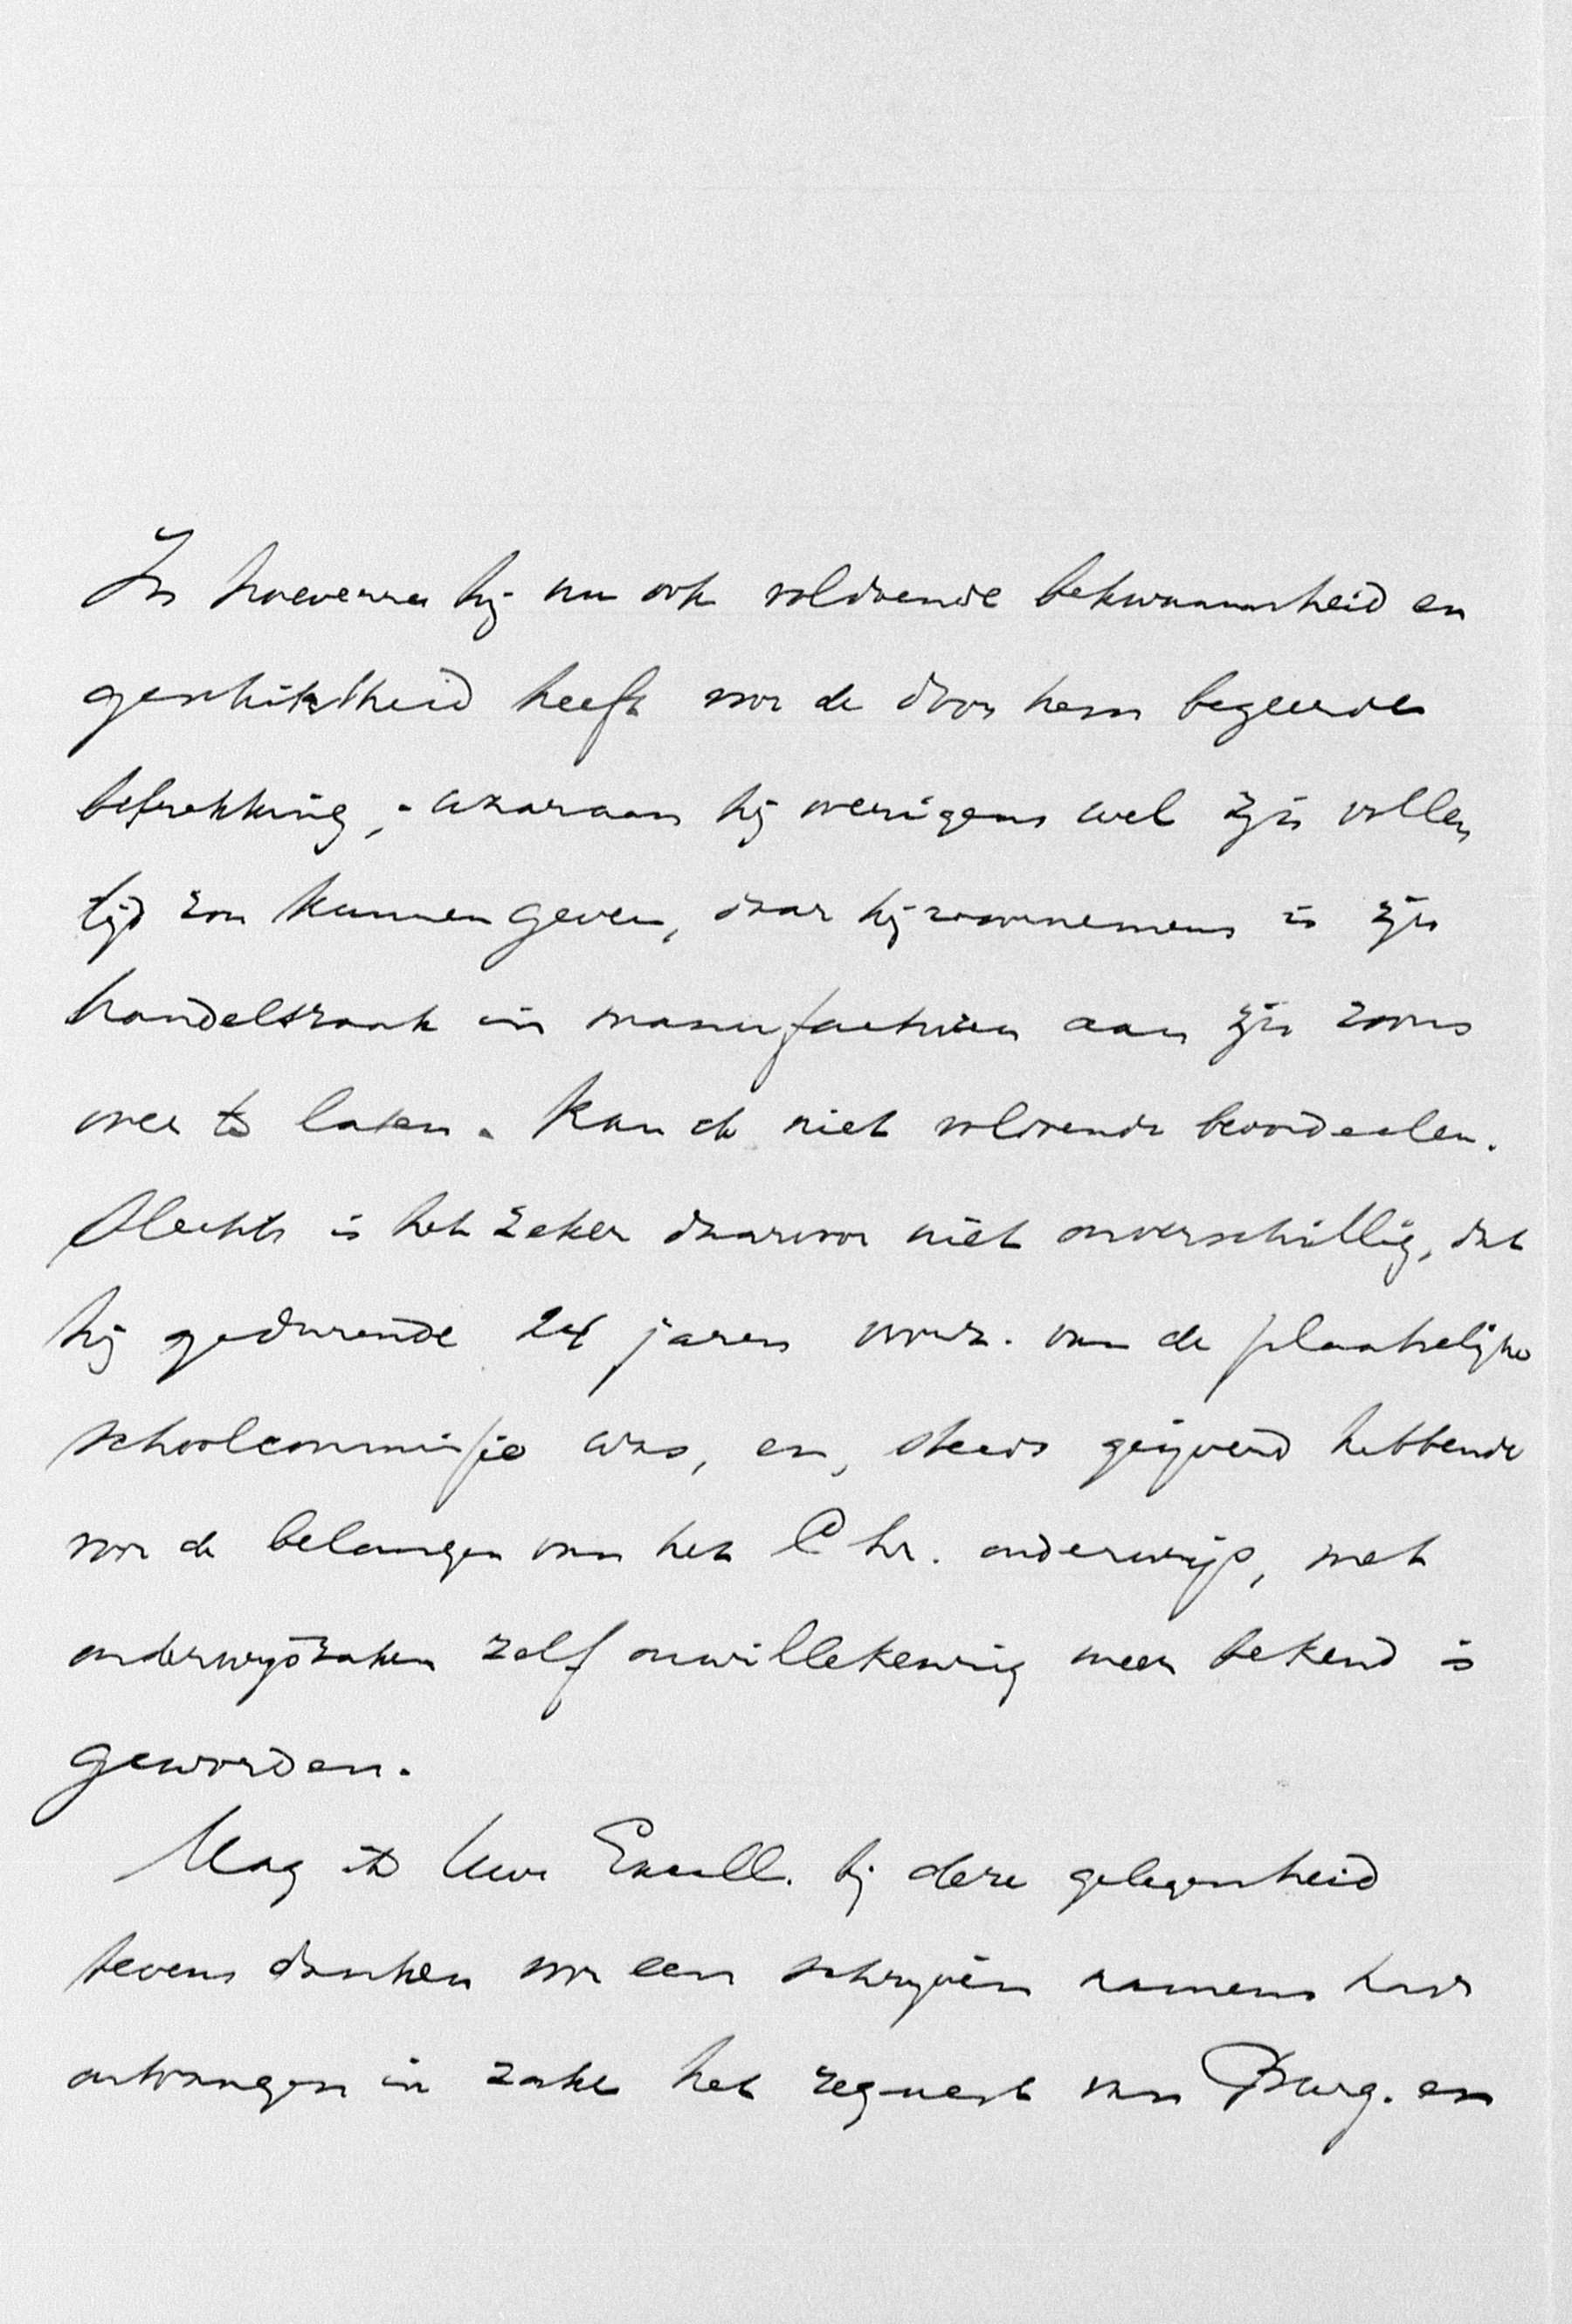 In hoeverre hij nu ook voldoende bekwaamheid en
geschiktheid heeft voor de door hem begeerde
betrekking, - waaraan hij overigens wel zijn vollen
tijd zou kunnen geven, daar hij voornemens is zijn
handelszaak in manufacturen aan zijn zoons
over te laten. kan ik niet voldoende beoordeelen.
Slechts is het zeker daarvoor niet onverschillig, dat
hij gedurende 24 jaren voorz. van de plaatselijke
schoolcommissie was, en, steeds geijverd hebbende
voor de belangen van het Chr. onderwijs, met
onderwijszaken zelf onwillekeurig meer bekend is
geworden.
Mag ik Uwe Excell. bij deze gelegenheid
tevens danken voor een schrijven namens haar
ontvangen in zake het request van Burg. en